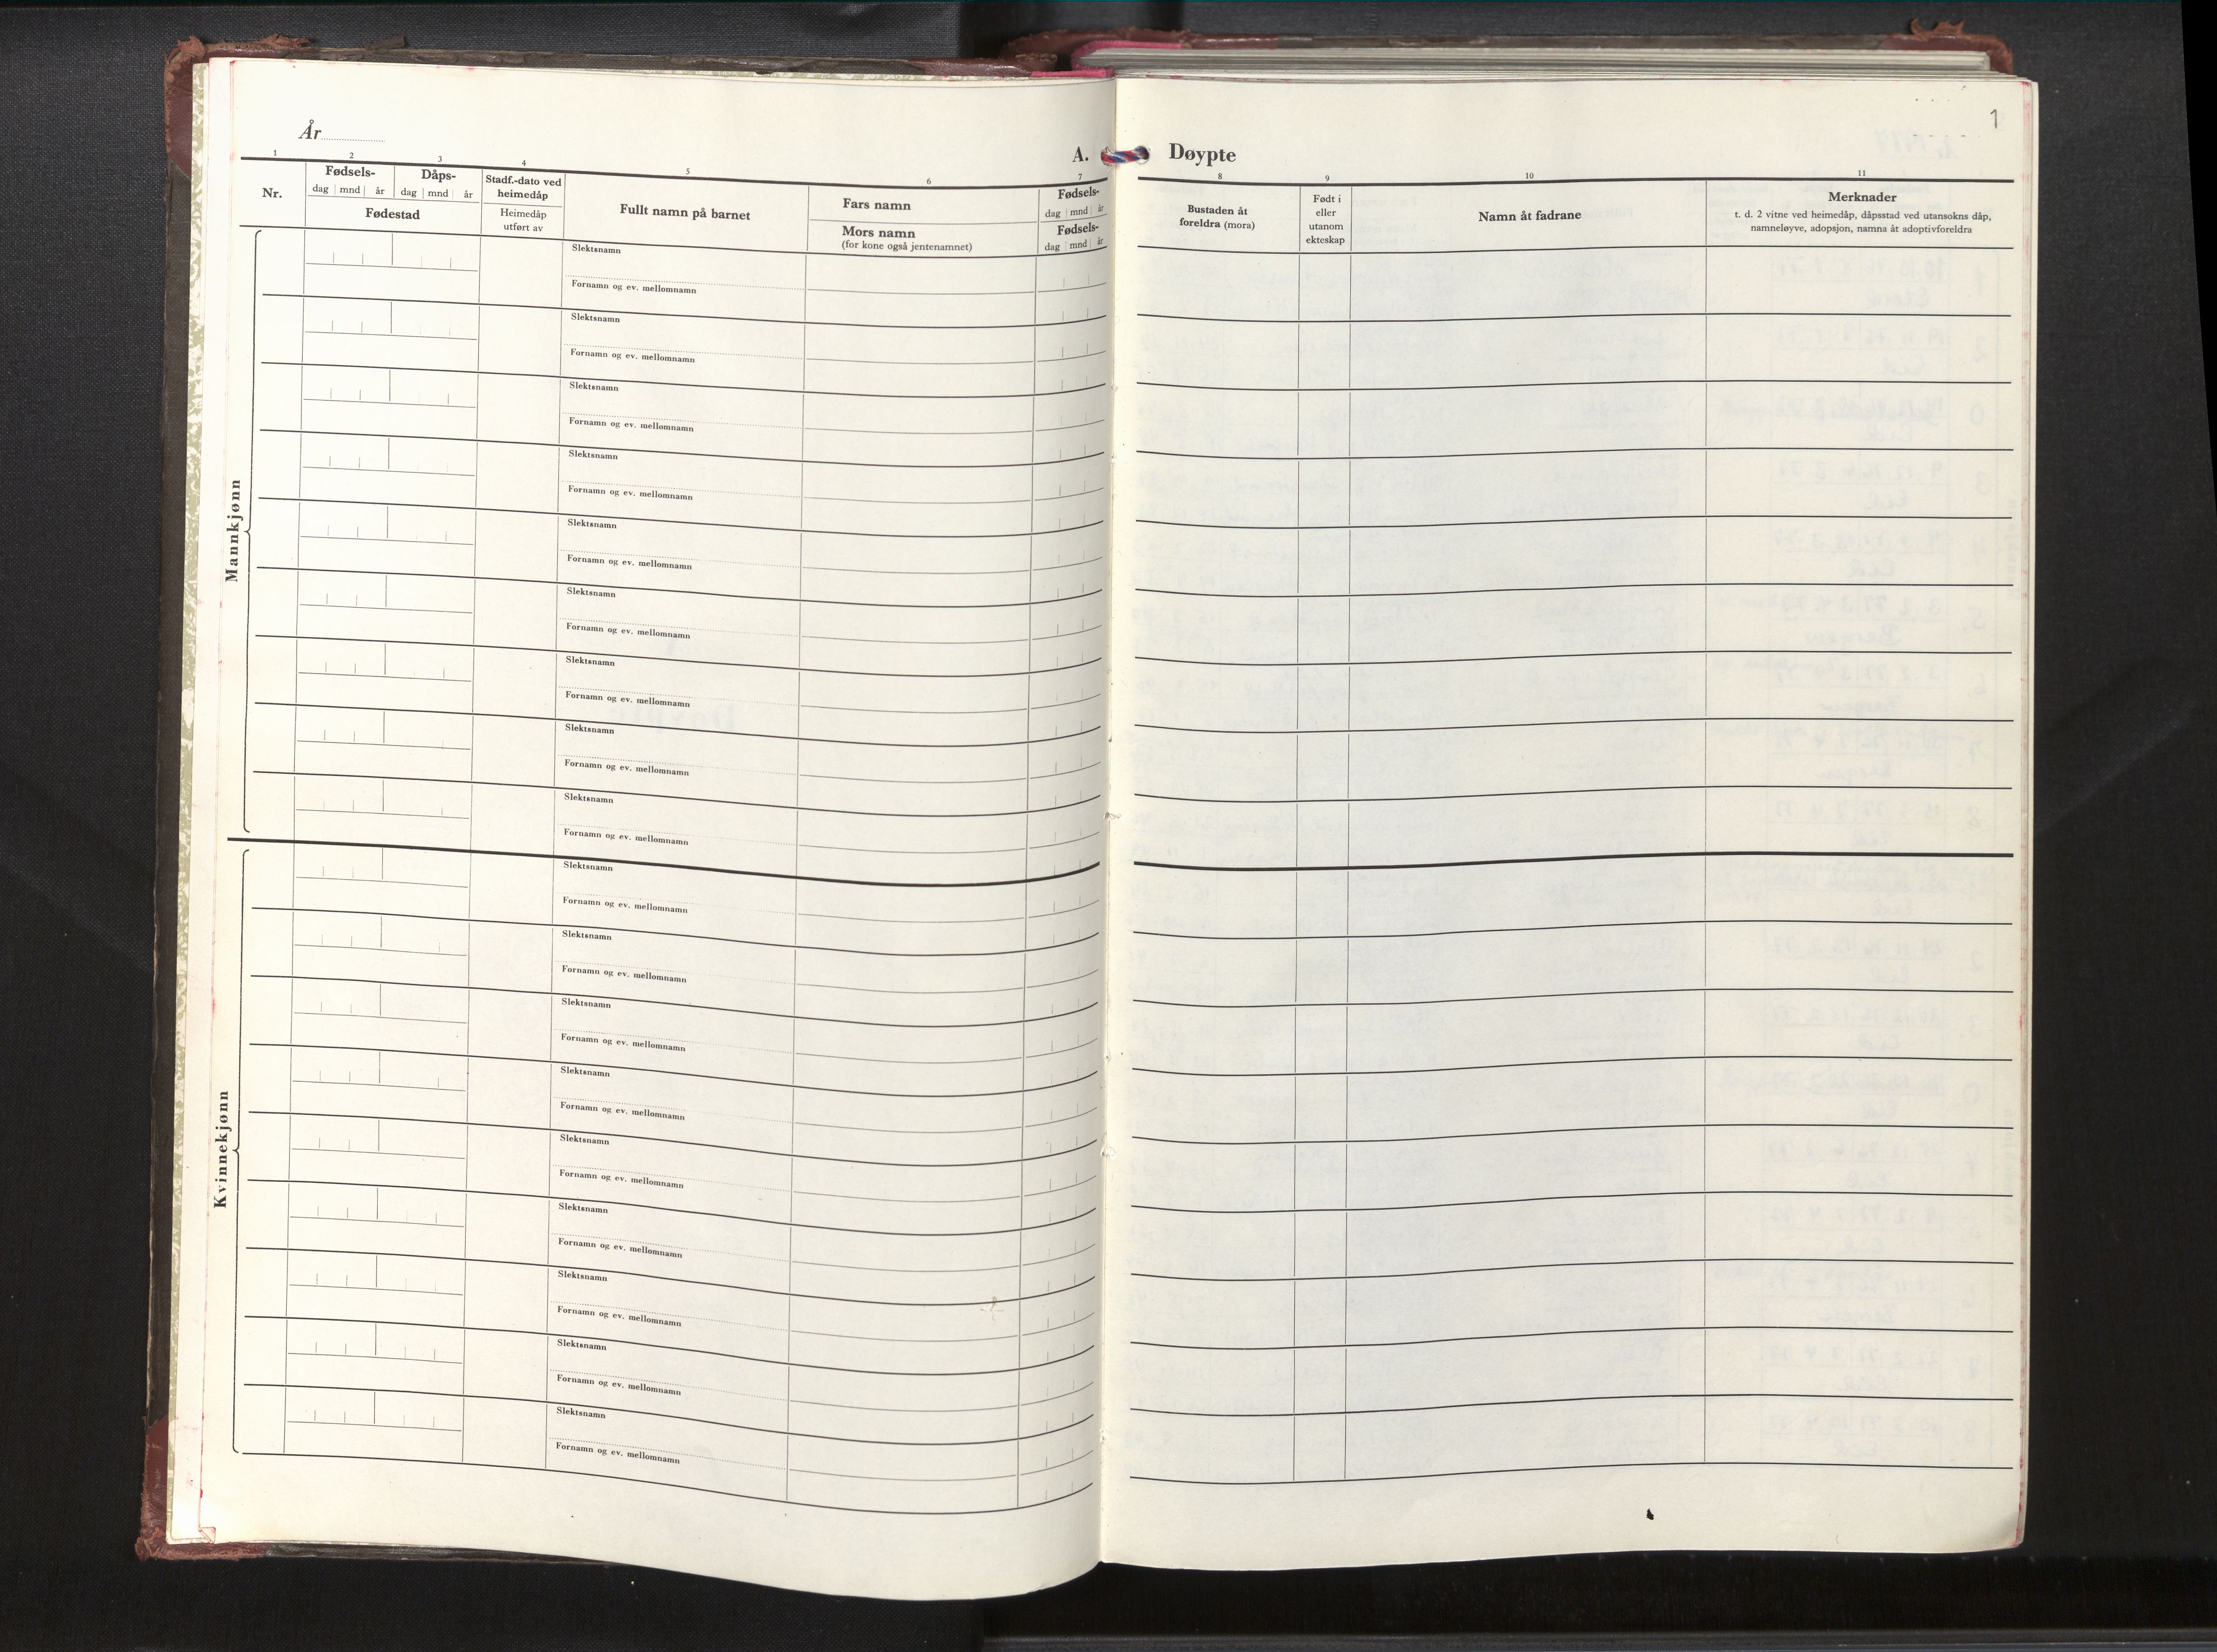 1
År
A. Døypte
1 2 3 4 5 6 7 8 9 10 11
Nr.
Fødsels-
dag mnd år
Dåps-
dag mnd år
Fødestad
Stadf.-dato ved
heimedåp
Heimedåp
utført av
Fullt namn på barnet
Fars namn
Mors namn
(for kone også jentenamnet)
Fødsels-
dag mnd år
Fødsels-
dag mnd år
Bustaden åt
foreldra (mora)
Født i
eller
utanom
ekteskap
Namn åt fadrane
Merknader
t. d. 2 vitne ved heimedåp, dåpsstad ved utansokns dåp,
namneløyve, adopsjon, namna åt adoptivforeldra
Mannkjønn
Slektsnamn
Fornamn og ev. mellomnamn
Slektsnamn
Fornamn og ev. mellomnamn
Slektsnamn
Fornamn og ev. mellomnamn
Slektsnamn
Fornamn og ev. mellomnamn
Slektsnamn
Fornamn og ev. mellomnamn
Slektsnamn
Fornamn og ev. mellomnamn
Slektsnamn
Fornamn og ev. mellomnamn
Slektsnamn
Fornamn og ev. mellomnamn
Slektsnamn
Fornamn og ev. mellomnamn
Kvinnekjønn
Slektsnamn
Fornamn og ev. mellomnamn
Slektsnamn
Fornamn og ev. mellomnamn
Slektsnamn
Fornamn og ev. mellomnamn
Slektsnamn
Fornamn og ev. mellomnamn
Slektsnamn
Fornamn og ev. mellomnamn
Slektsnamn
Fornamn og ev. mellomnamn
Slektsnamn
Fornamn og ev. mellomnamn
Slektsnamn
Fornamn og ev. mellomnamn
Slektsnamn
Fornamn og ev. mellomnamn